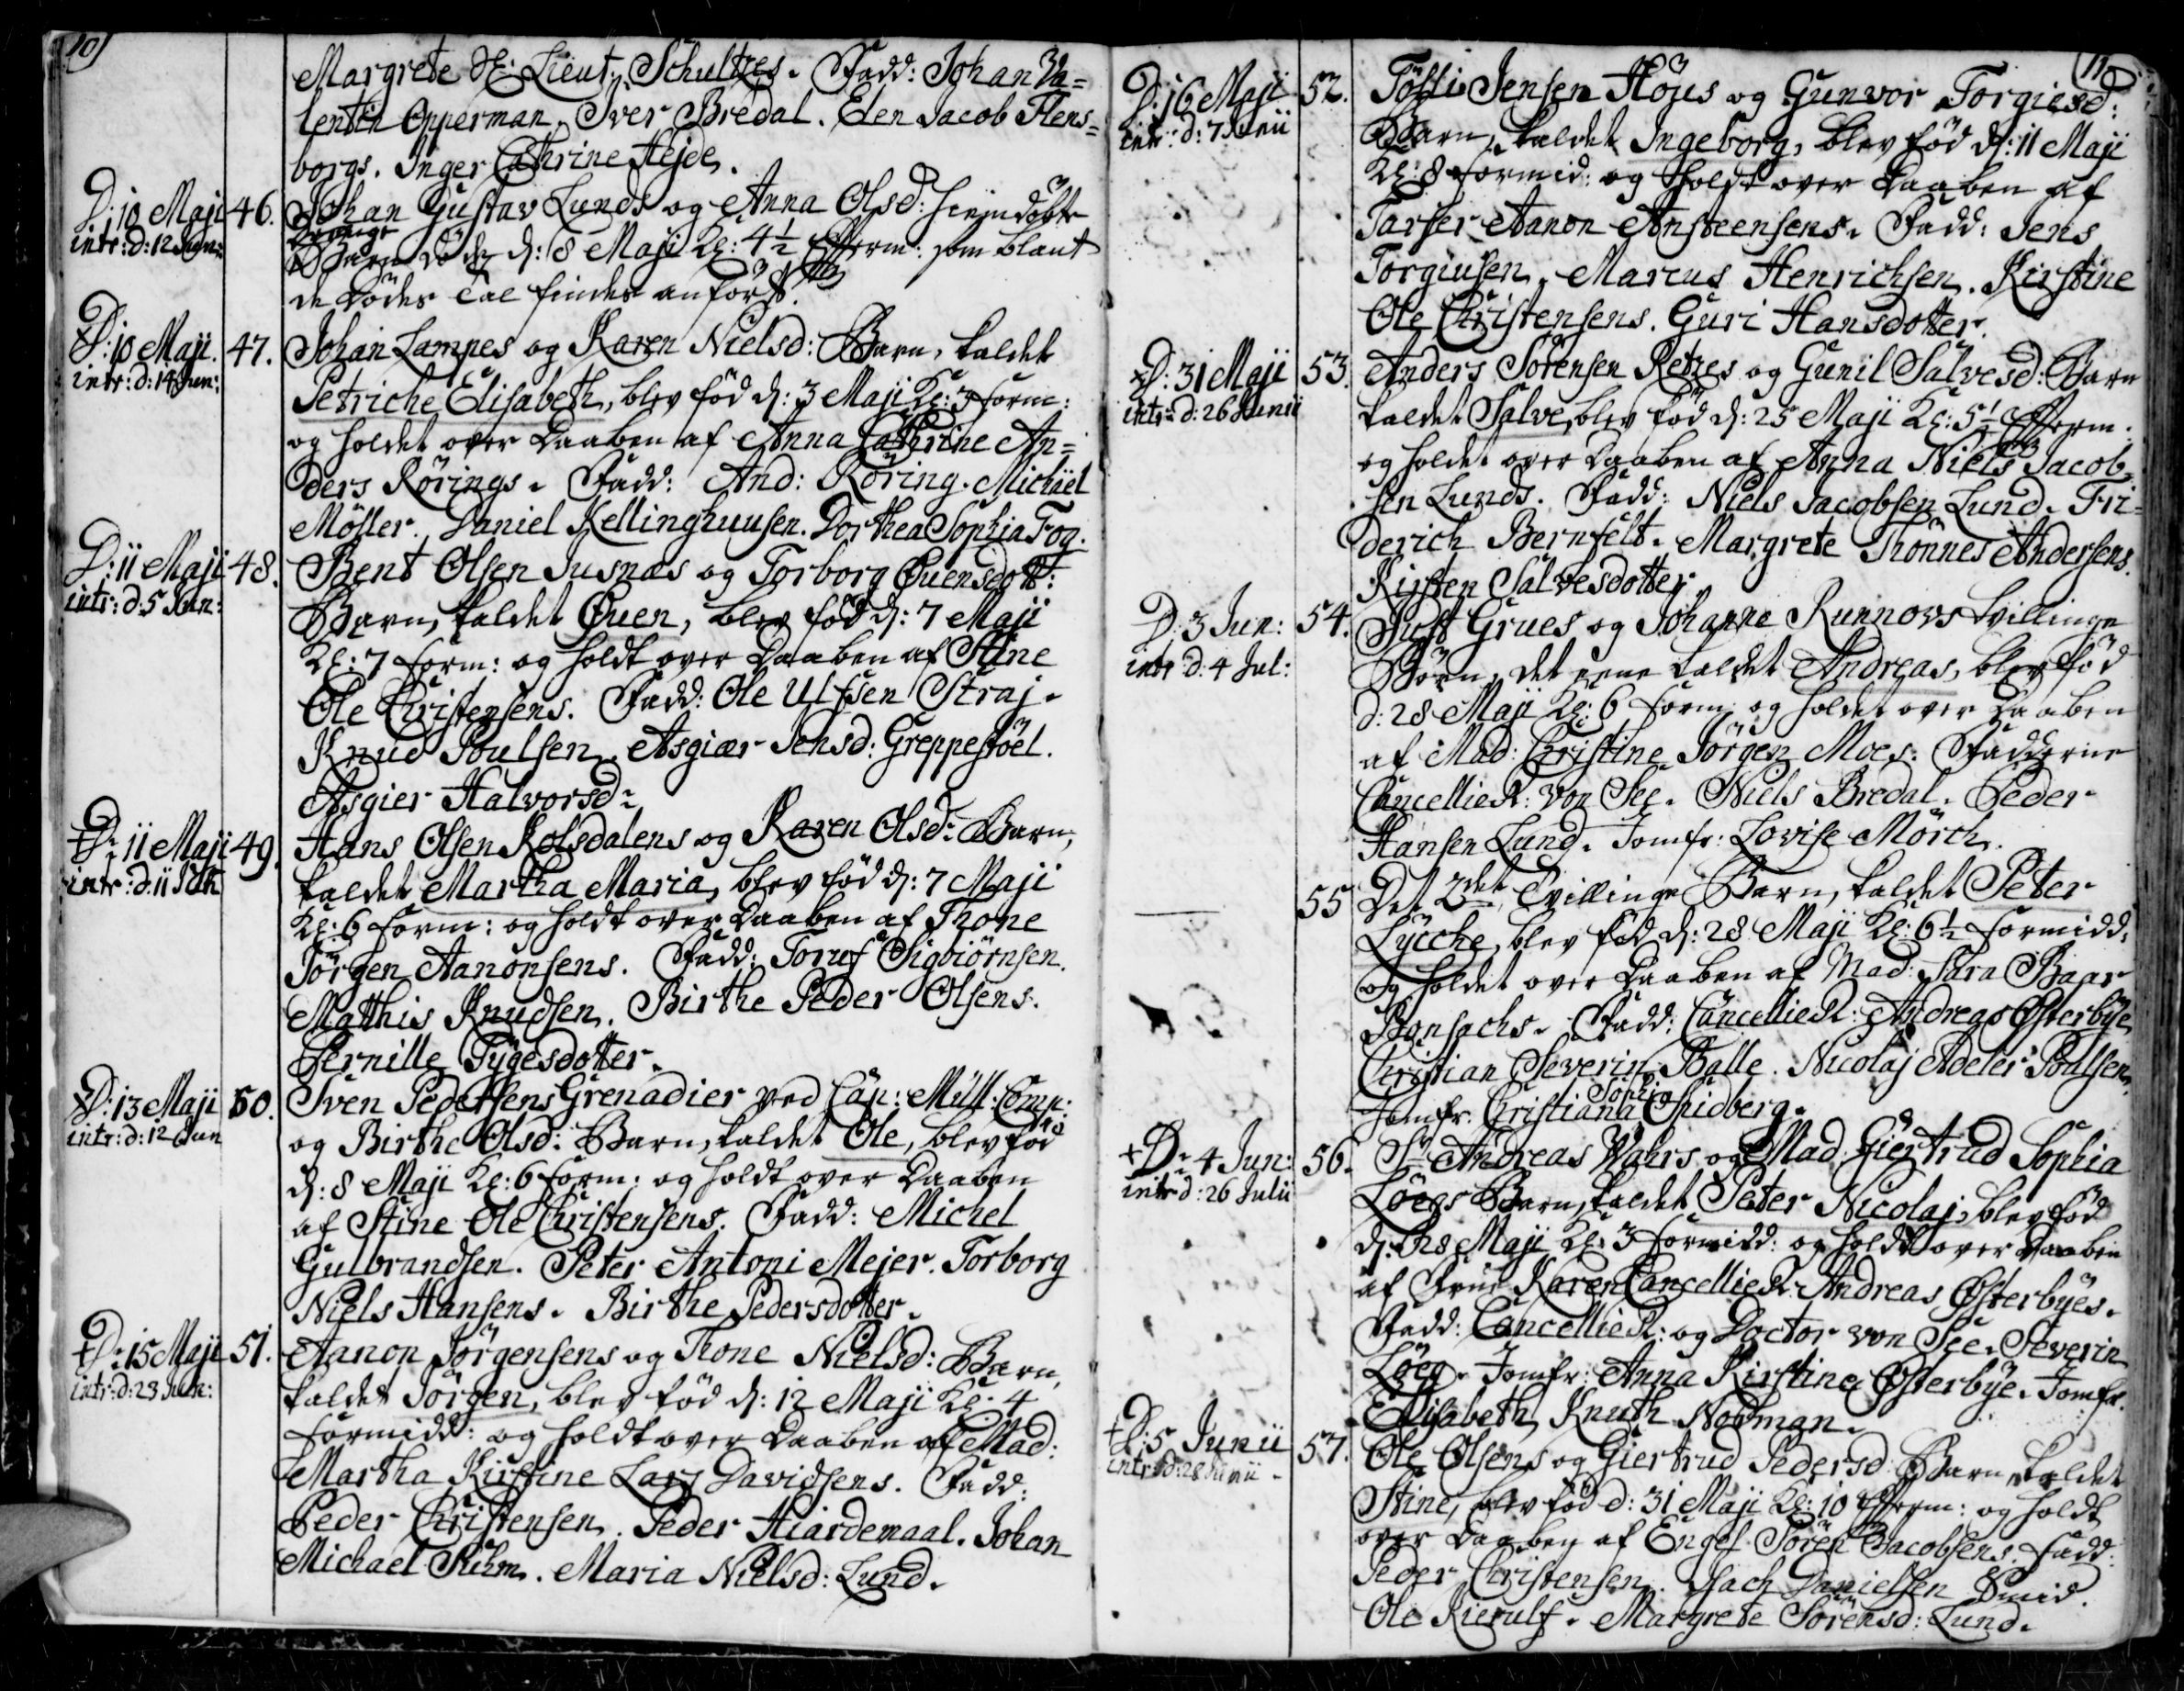 10
Margrete Hr: Lieut: Schultzes. Fadd: Johan Va=
lentin Opperman. Iver Bredal. Elen Jacob Flens=
borgs. Inger Cathrine Hejde.
D: 10 Maji 46. Johan Gustav Lunds og Anna Olsd: hiemdöbte
intr: d: 12 Jun: Barn döde d: 8 Maji Kl: 4½ Efterm: som blant
de Dödes Tal findes anfört.
D: 10 Maji. 47. Johan Lampes og Karen Nielsd: Barn, kaldet
intr: d: 14 Jun: Petriche Elisabeth, blev föd d: 3 Maji Kl: 3 form:
og holdet over Daaben af Anna Cathrine An=
ders Rörings. Fadd: And: Röring. Michael
Möller. Daniel Kellinghuusen. Dorthea Sophia Fog.
D: 11 Maji 48. Bent Olsen Jusnæs og Torborg Ouensdott:
intr: d: 5 Jun: Barn, kaldet Ouen, blev föd d: 7 Maji
Kl: 7 form: og holdt over Daaben af Stine
Ole Christensens. Fadd: Ole Ulfsen Straj.
Knud Poulsen. Asgiær Jensd: Greppestöel.
Asgier Halvorsd:
+ D: 11 Maji 49. Hans Olsen Kolsdalens og Karen Olsd: Barn,
intr: d: 11 kaldet Martha Maria, blev föd d: 7 Maji
Kl: 6 form: og holdt over Daaben af Thone
Jörgen Aanonsens. Fadd: Toruf Sigbiörnsen.
Matthis Knudsen. Birthe Peder Olsens.
Pernille Tygesdotter.
D: 13 Maji 50. Sven Pedersens Grenadier ved Cap: Müll: Comp:
intr: d: 12 Jun og Birthe Olsd: Barn, kaldet Ole, blev föd
d: 8 Maji Kl: 6 form: og holdt over Daaben
af Stine Ole Christensens. Fadd: Michel
Gulbrandsen. Peter Antoni Mejer. Torborg
Niels Hansens. Birthe Pedersdotter.
+ D: 15 Maji 51. Aanon Jörgensens og Thone Nielsd: Barn,
intr: d: 23 Jun: kaldet Jörgen, blev föd d: 12 Maji Kl: 4
formidd: og holdt over Daaben af Mad:
Martha Kirstine Lars Davidsens. Fadd:
Peder Christensen. Peder Hiardemaal. Johan
Michael Rühm. Maria Nielsd: Lund.
11
D: 16 Maji 52. Jensen Höjes og Gunvor Torgiesd:
intr: d: 7 Junii Barn, kaldet Ingeborg, blev föd d: 11 Maji
Kl: 8 formid: og holdt over Daaben af
Aanon Ansteensens. Fadd: Jens
Torgiusen. Marcus Henrichsen. Kirstine
Ole Christensens. Guri Hansdotter.
D: 31 Maji 53. Anders Sörensen Retzes og Gunil Salvesd: Barn
intr: d: 26 Junii kaldet Salve, blev föd d: 25 Maji Kl: 5½ Efterm.
og holdet over Daaben af Anna Niels Jacob=
sen Lunds. Fadd: Niels Jacobsen Lund. Fri=
derich Bernfelt. Margrete Thönnes Andersens.
Kirsten Salvesdotter.
D: 3 Jun: 54. Just Grues og Johanne Runnovs Tvillinge
intr d: 4 Jul: Börn, det eene kaldet Andreas, blev föd
d: 28 Maji Kl: 6 form: og holdet over Daaben
af Mad: Christine Jörgen Moes. Fadderne
CancellieR: von See. Niels Bredal. Peder
Hansen Lund. Jomfr: Lovise Mörch.
55 Det 2det Tvillinge Barn, kaldet Peter
Lycche, blev föd d: 28 Maji Kl: 6½ formidd:
og holdet over Daaben af Mad: Sara Baar
Bonsachs. Fadd: CancellieR: Andreas Österbye
Christian Severin Balle. Nicolaj Adeler Poulsen.
Jomfr. Christiana Sophia Spidberg.
+ D: 4 Jun: 56. Sr Andreas Wahrs og Mad Giertrud Sophia
intr d: 26 Julii Löegs Barn, kaldet Peter Nicolaj, blev föd
d: 28 Maji Kl: 3 formidd: og holdt over Daaben
af Frue Karen CancellieR: Andreas Österbyes.
Fadd: CancellieR: og Doctor von See. Severin
Löeg. Jomfr: Anna Kirstine Österbye. Jomfr.
Elisabeth Knuth Nodman.
+ D: 5 Junii 57. Ole Olsens og Giertrud Pedersd Barn, kaldet
intr d: 28 Junii Stine, blev föd d: 31 Maji Kl: 10 Efterm: og holdt
over Daaben af Engel Sören Jacobsens. Fadd:
Peder Christensen. Isach Danielsen Smid.
Ole Kierulf. Margrete Sörensd: Lund.